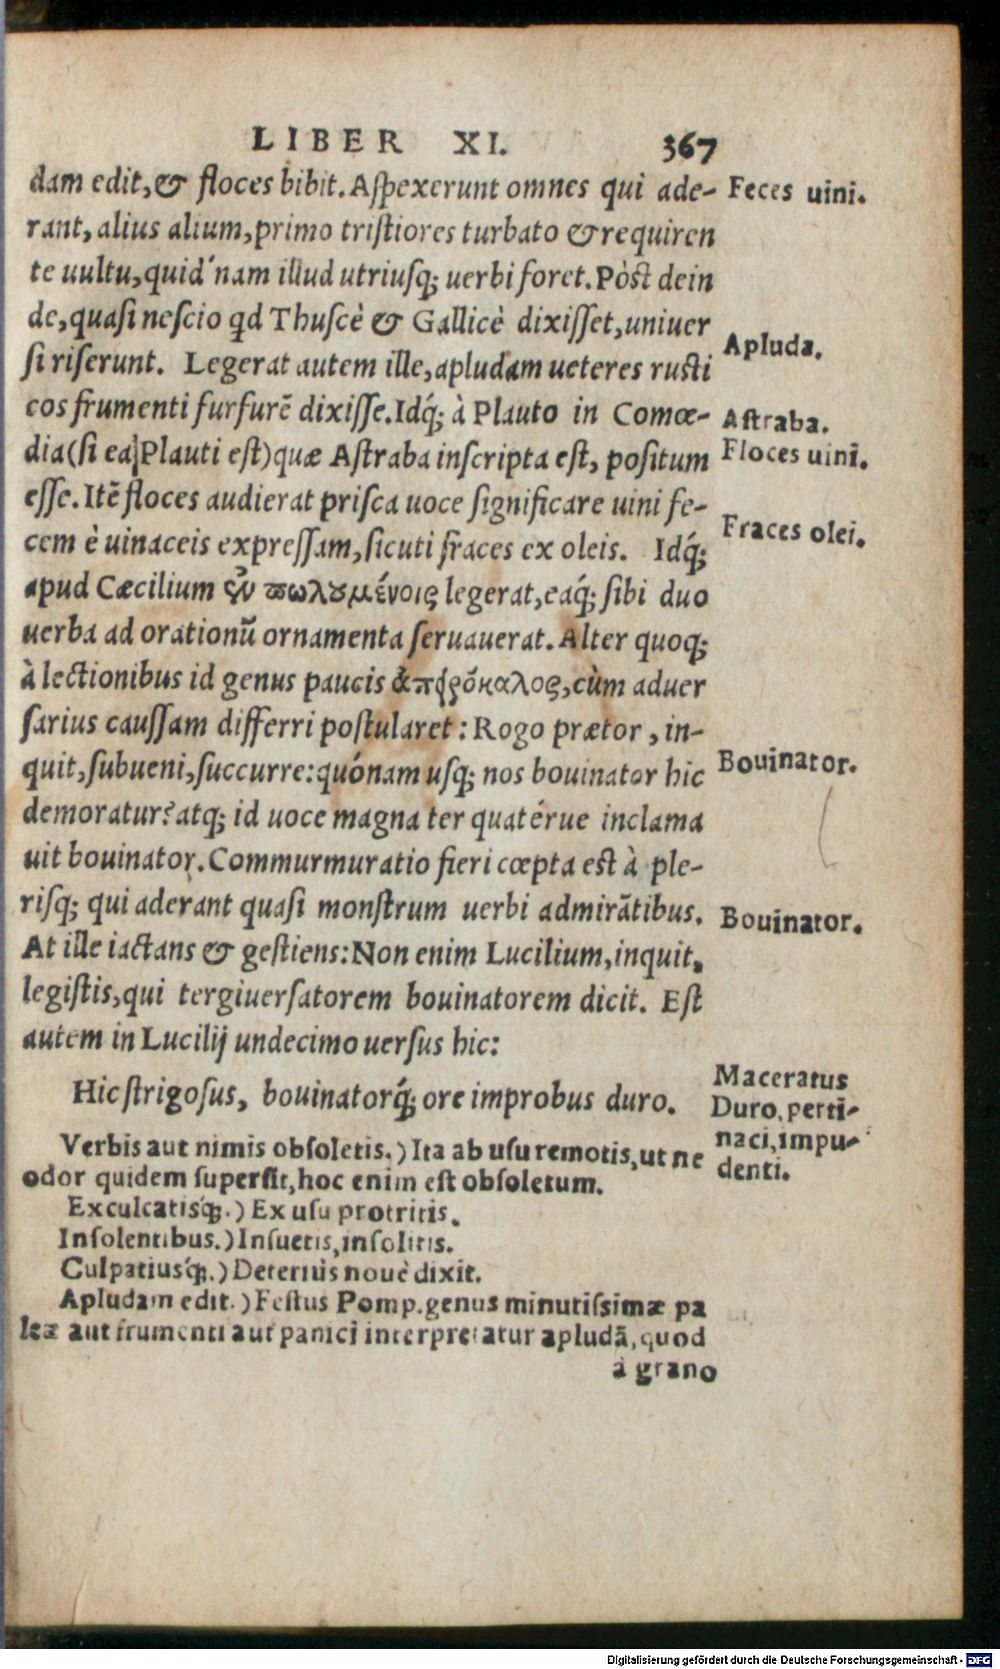 LIBER XI. 367
dam edit, & floces bibit. Aspexerunt omnes qui ade-
Feces uini.
rant, alius alium, primo tristiores turbato & requiren
te uultu, quid´nam illud utriusq; uerbi foret. Pòst dein
de, quasi nescio qd Thuscè & Gallicè dixisset, uniuer
Apluda.
si riserunt. Legerat autem ille, apludam ueteres rusti
cos frumenti furfurẽ dixisse. Idq́; à Plauto in Comœ-
Astraba.
dia (si ea Plauti est) quæ Astraba inscripta est, positum
Floces uinĩ.
esse. Itẽ floces audierat prisca uoce significare uini fe-
cem è uinaceis expressam, sicuti fraces ex oleis. Idq́;
Fraces olei.
apud Cæcilium ἐν πωλουμένοις legerat, eaq́; sibi duo
uerba ad orationũ ornamenta seruauerat. Alter quoq;
à lectionibus id genus paucis ἀπειρόκαλος, cùm aduer
sarius caussam differri postularet: Rogo prætor, in-
quit, subueni, succurre: quónam usq; nos bouinator hic
Bouinator.
demoratur? atq; id uoce magna ter quatérue inclama
uit bouinator. Commurmuratio fieri cœpta est à ple-
risq; qui aderant quasi monstrum uerbi admirãtibus.
Bouinator.
At ille iactans & gestiens: Non enim Lucilium, inquit,
legistis, qui tergiuersatorem bouinatorem dicit. Est
autem in Lucilij undecimo uersus hic:
Hic strigosus, bouinatorq́; ore improbus duro.
Maceratus
Duro, perti-
naci, impu-
denti.
Verbis aut nimis obsoletis.) Ita ab usu remotis, ut ne
odor quidem supersit, hoc enim est obsoletum.
Exculcatisq́;.) Ex usu protritis.
Insolentibus.) Insuetis, insolitis.
Culpatiusq́;.) Deterius nouè dixit.
Apludam edit.) Festus Pomp. genus minutissimæ pa
leæ aut frumenti aut panici interpretatur apludã, quod
à grano
Digitalisierung gefördert durch die Deutsche Forschungsgemeinschaft - DFG